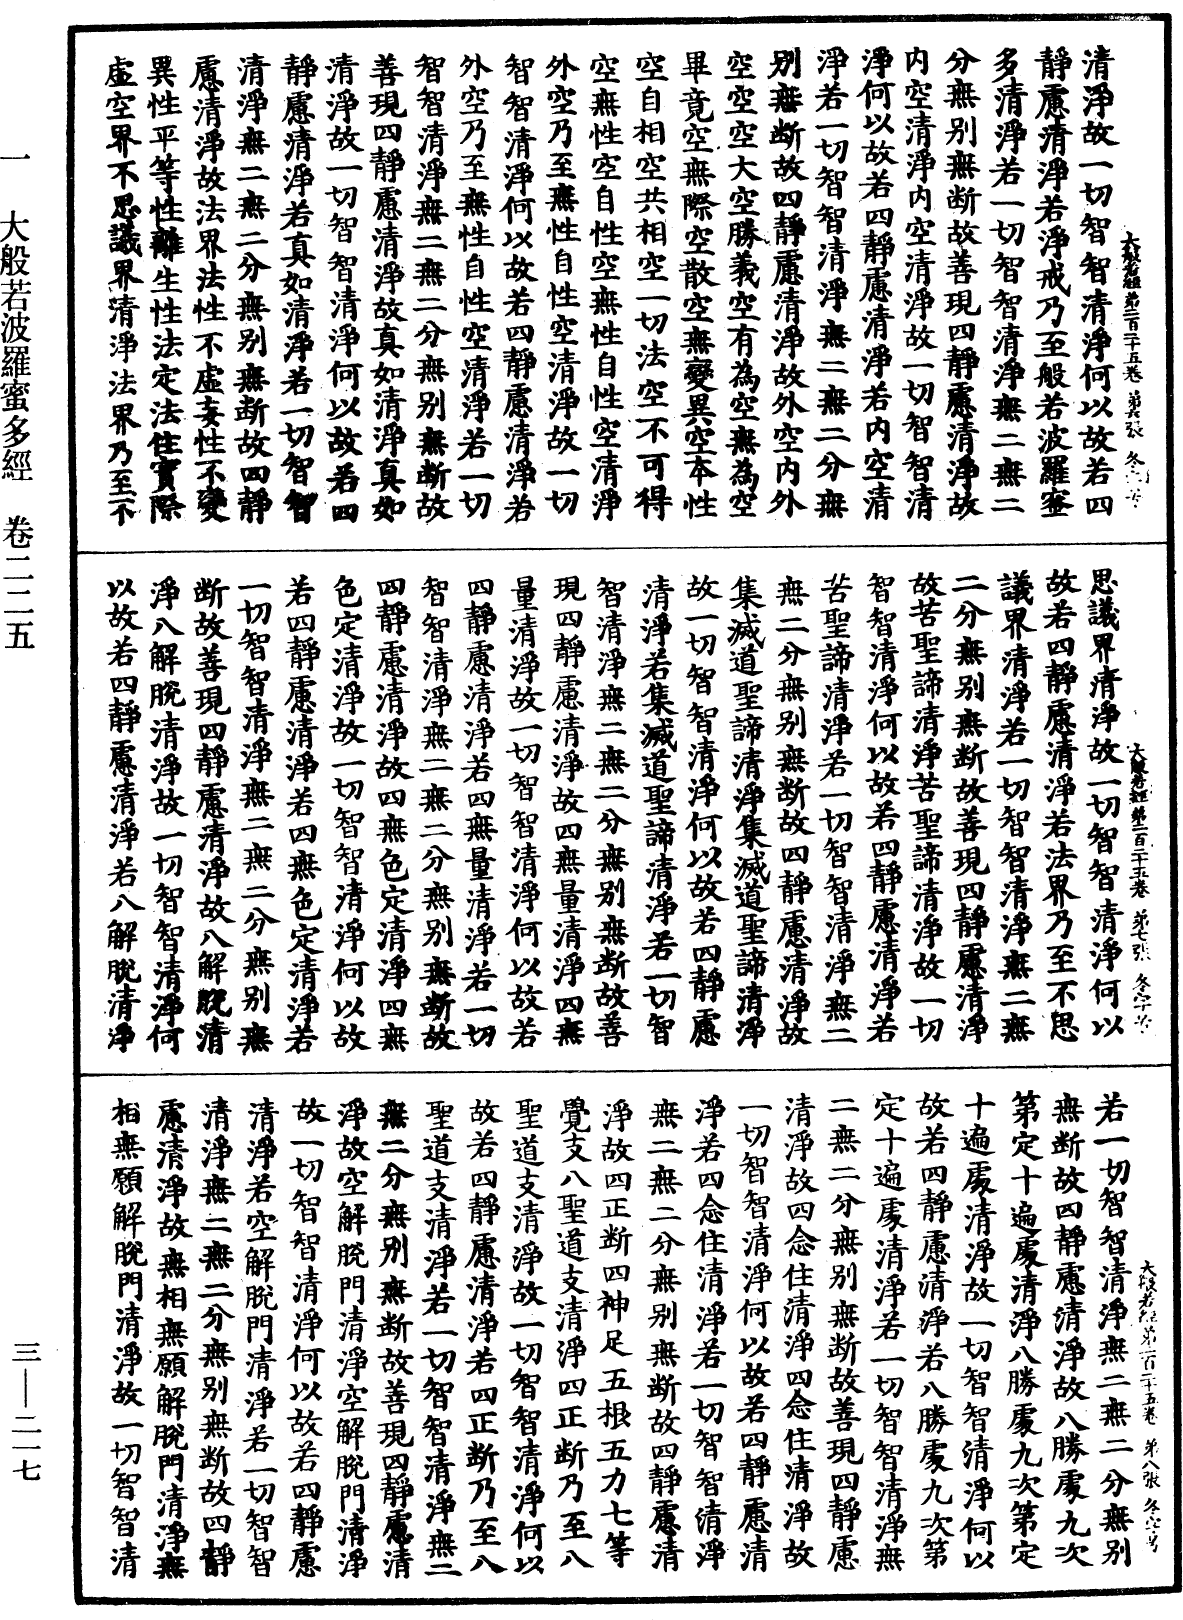 清淨故一切智智清淨何以故若四
靜慮清淨若淨戒乃至般若波羅蜜
多清淨若一切智智清淨無二無二
分無別無斷故善現四靜慮清淨故
內空清淨內空清淨故一切智智清
淨何以故若四靜慮清淨若內空清
淨若一切智智清淨無二無二分無
別無斷故四靜慮清淨故外空內外
空空空大空勝義空有為空無為空
畢竟空無際空散空無變異空本性
空自相空共相空一切法空不可得
空無性空自性空無性自性空清淨
外空乃至無性自性空清淨故一切
智智清淨何以故若四靜慮清淨若
外空乃至無性自性空清淨若一切
智智清淨無二無二分無別無斷故
善現四靜慮清淨故真如清淨真如
清淨故一切智智清淨何以故若四
靜慮清淨若真如清淨若一切智智
清淨無二無二分無別無斷故四靜
慮清淨故法界法性不虛妄性不變
異性平等性離生性法定法住實際
虛空界不思議界清淨法界乃至不
大般若經第二百二十五卷 第六張 冬字号
思議界清淨故一切智智清淨何以
故若四靜慮清淨若法界乃至不思
議界清淨若一切智智清淨無二無
二分無別無斷故善現四靜慮清淨
故苦聖諦清淨苦聖諦清淨故一切
智智清淨何以故若四靜慮清淨若
苦聖諦清淨若一切智智清淨無二
無二分無別無斷故四靜慮清淨故
集滅道聖諦清淨集滅道聖諦清淨
故一切智智清淨何以故若四靜慮
清淨若集滅道聖諦清淨若一切智
智清淨無二無二分無別無斷故善
現四靜慮清淨故四無量清淨四無
量清淨故一切智智清淨何以故若
四靜慮清淨若四無量清淨若一切
智智清淨無二無二分無別無斷故
四靜慮清淨故四無色定清淨四無
色定清淨故一切智智清淨何以故
若四靜慮清淨若四無色定清淨若
一切智智清淨無二無二分無別無
斷故善現四靜慮清淨故八解脫清
淨八解脫清淨故一切智智清淨何
以故若四靜慮清淨若八解脫清淨
大般若經第二百二十五卷 第七張 冬字号
若一切智智清淨無二無二分無別
無斷故四靜慮清淨故八勝處九次
第定十遍處清淨八勝處九次第定
十遍處清淨故一切智智清淨何以
故若四靜慮清淨若八勝處九次第
定十遍處清淨若一切智智清淨無
二無二分無別無斷故善現四靜慮
清淨故四念住清淨四念住清淨故
一切智智清淨何以故若四靜慮清
淨若四念住清淨若一切智智清淨
無二無二分無別無斷故四靜慮清
淨故四正斷四神足五根五力七等
覺支八聖道支清淨四正斷乃至八
聖道支清淨故一切智智清淨何以
故若四靜慮清淨若四正斷乃至八
聖道支清淨若一切智智清淨無二
無二分無別無斷故善現四靜慮清
淨故空解脫門清淨空解脫門清淨
故一切智智清淨何以故若四靜慮
清淨若空解脫門清淨若一切智智
清淨無二無二分無別無斷故四靜
慮清淨故無相無願解脫門清淨無
相無願解脫門清淨故一切智智清
大般若經第二百二十五卷 第八張 冬字号
一 大般若波羅蜜多經 卷二二五
三—二一七